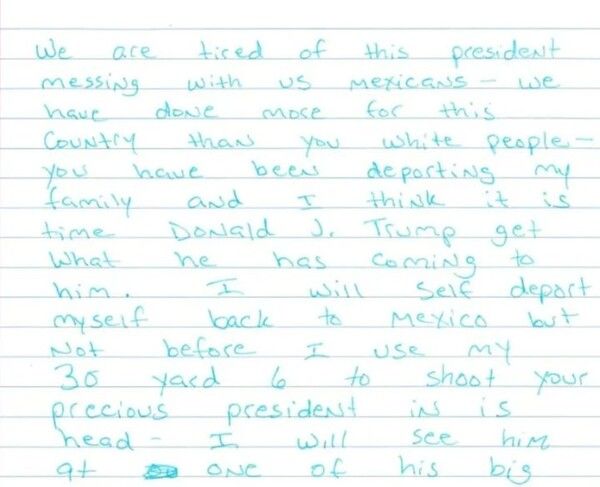 We are tired of this president
messing with us Mexicans - we
have done more for this
Country than you white people -
you have been deporting my
family and I think it is
time Donald J. Trump get
What he has coming to
him. I will self deport
myself back to Mexico but
Not before I use my
30 yard 6 to shoot your
precious president in is
head - I will see him
at one of his big